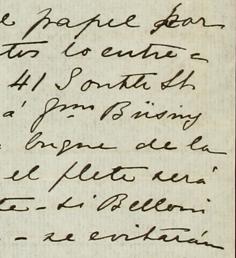 papel por
tos lo entre=
41 South St
á Jmo Büsing
buque de la
el flete será
te - si Belloni
- se evitarán